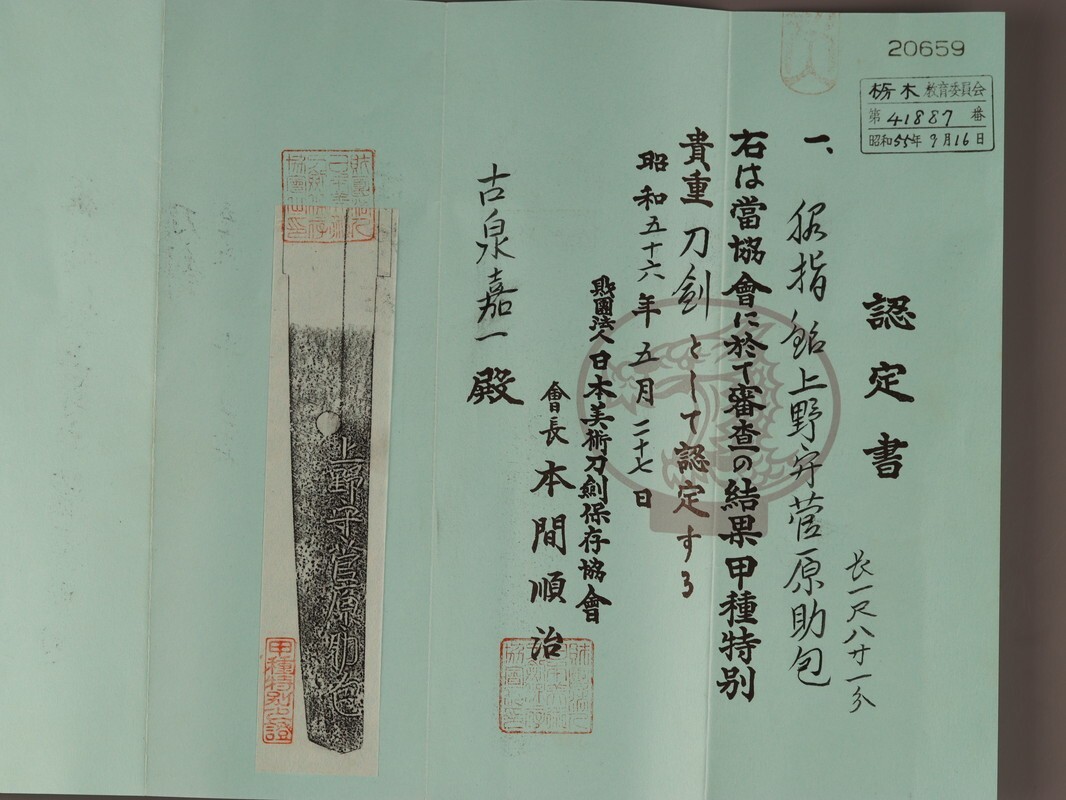 20659
栃木教育委員会
第41887番
昭和55年9月16日
認定書
一、脇指 銘上野守菅原助包
長一尺八寸一分
右は當協會に於て審査の結果甲種特別
貴重刀剣として認定する
昭和五十六年五月二十七日
財團法人日本美術刀劍保存協會
會長 本間順治
古泉嘉一殿
上野守菅原助包
甲種特別之證